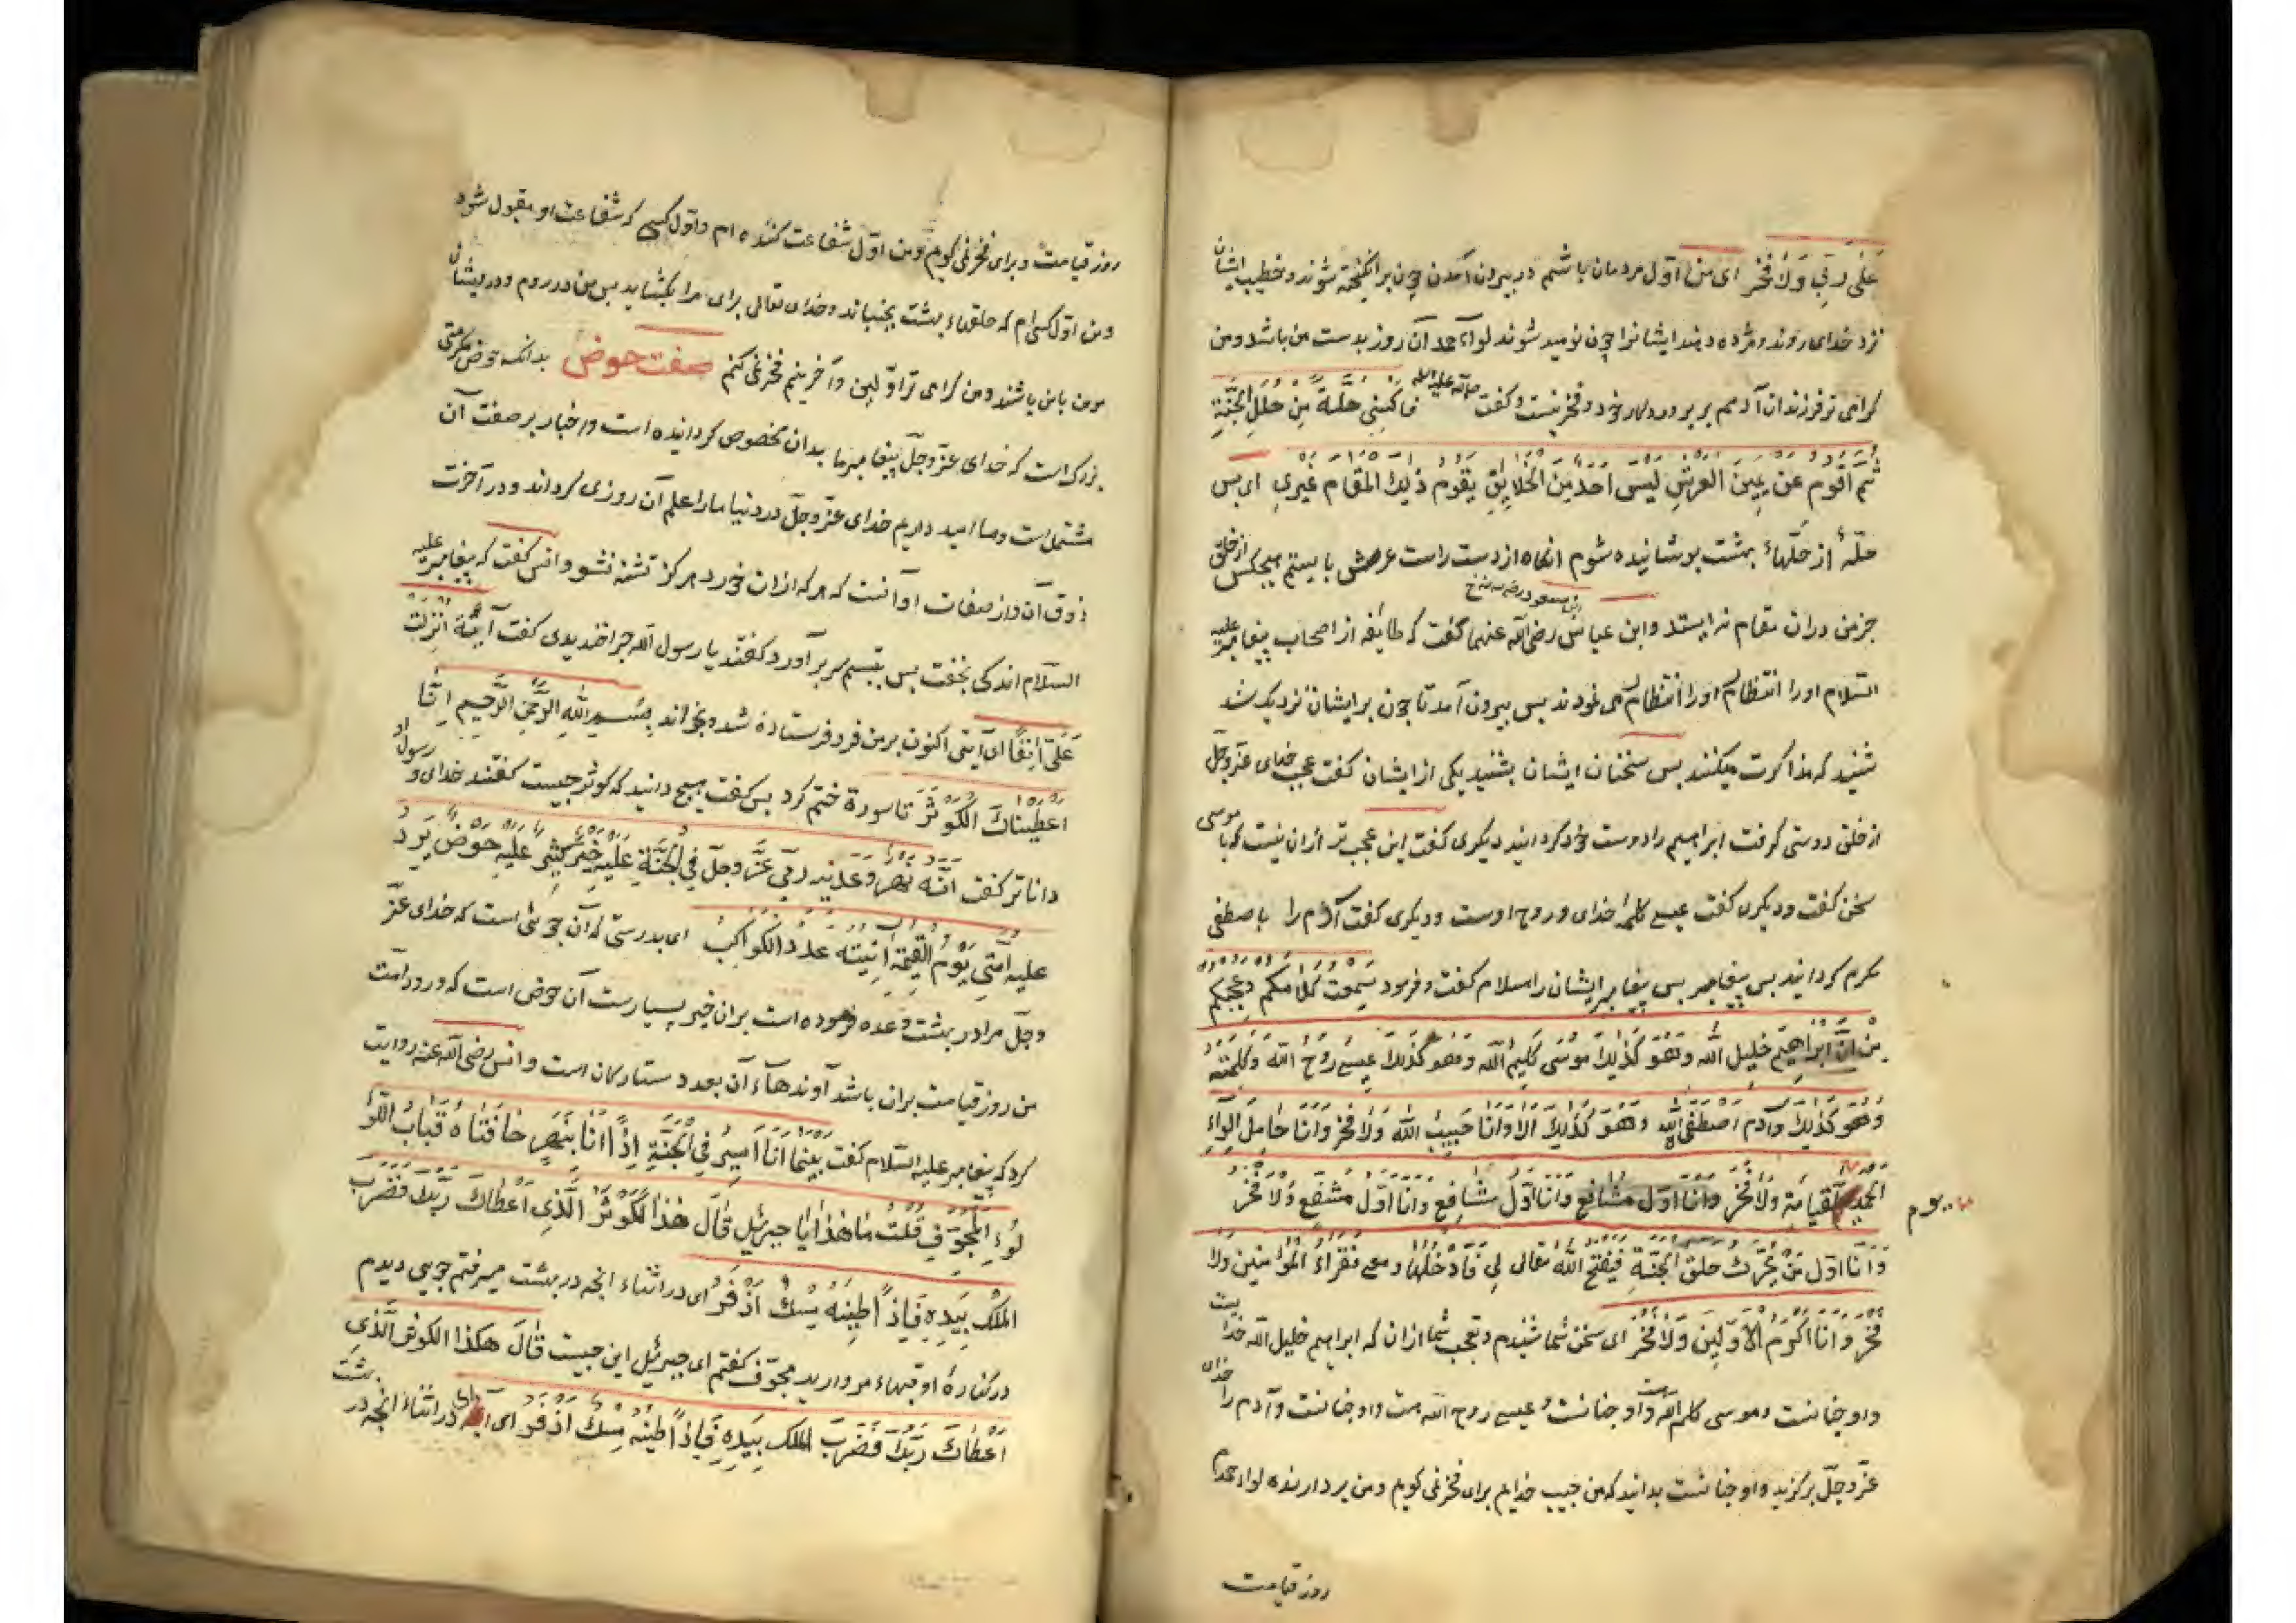 عَلَى رَبّي وَلَا فَخْرَ ای من اوّل مردمان باشم در بیرون آمدن چون برانکیخته شوند و خطیب ایشان
نزد خدای روند و مژده دهند ایشانرا چون نومید شوند لواء حمد آن روز بدست من باشد و من
کرامی تر فرزندان آدمم بر پروردکار خود و فخر نیست و کفت صلی الله علیه فَاُکْسٰی حُلَّةً مِنْ حُلَلِ الْجَنَّةِ
ثُمَّ اَقُومُ عَنْ یَمِینِ الْعَرْشِ لَیْسَ اَحَدٌ مِنَ الْخَلَایِقِ یَقُومُ ذٰلِکَ الْمَقَامَ غَیْرِی ای پس
حلّهٔ از حلّهاءِ بهشت پوشانیده شوم انکاه از دست راست عرش بایستم هیچکس از خلق
جز من دران مقام نه ایستد و ابن عباس رضی الله عنهما کفت که طایفه از اصحاب پیغامبر علیه
ابن مسعود
السّلام او را انتظار او را انتظار می نمودند پس بیرون آمد تا چون بر ایشان نزدیک شد
شنید که مذاکرت میکنند پس سخنان ایشان بشنید یکی از ایشان کفت عجب خدای عزّوجلّ
از خلق دوستی کرفت ابراهیم را دوست خود کردانید دیکری کفت این عجب تر ازان نیست که با موسی
سخن کفت و دیکری کفت عیسی کلمهٔ خدای و روح اوست و دیکری کفت آدم را باصطفی
مکرم کردانید پس پیغامبر پس پیغامبر ایشان را سلام کفت و فرمود سَمِعْتُ کَلَامَکُمْ وَعَجَبَکُمْ
مِنْ اَنَّ اِبْرَاهِیمَ خَلِیلُ اللّٰهِ وَهُوَ کَذٰلِکَ مُوسٰی کَلِیمُ اللّٰهِ وَهُوَ کَذٰلِکَ عِیسٰی رُوحُ اللّٰهِ وَکَلِمَتُهُ
وَهُوَ کَذٰلِکَ وَآدَمُ اصْطَفَی اللّٰهُ وَهُوَ کَذٰلِکَ اَلَا وَاَنَا حَبِیبُ اللّٰهِ وَلَا فَخْرَ وَاَنَا حَامِلُ اللِّوَاءِ
الْحَمْدِ یوم القِیَامَةِ وَلَا فَخْرَ وَاَنَا اَوَّلُ مشافع وَاَنَا اَوَّلُ شَافِعٍ وَاَنَا اَوَّلُ مُشَفَّعٍ وَلَا فَخْرَ
وَاَنَا اَوَّلُ مَنْ یُحَرِّکُ حَلَقَ الْجَنَّةِ فَیَفْتَحُ اللّٰهُ تَعَالٰی لِی فَاَدْخُلُهَا وَمَعِی فُقَرَاءُ الْمُؤْمِنِینَ وَلَا
فَخْرَ وَاَنَا اَکْرَمُ الْاَوَّلِینَ وَلَا فَخْرَ ای سخن شما شنیدم و تعجب شما ازان که ابراهیم خلیل الله خدا یست
و او چنانست و موسی کلیم الله است و او چنانست و عیسی روح الله است و او چنانست و آدم را خدای
عزّوجلّ برکزید و او چنانست بدانید که من حبیب خدایم برای فخر نمی کویم و من بردارنده لواء حمدم
روز قیامت
روز قیامت و برای فخر نمی کویم و من اوّل شفاعت کننده ام و اوّل کسی که شفاعت او مقبول شود
و من اوّل کسی ام که حلقهاء بهشت بجنباند و خدای تعالی برای مرا بکشاید پس من در روم و درویشان
مومن با من باشند و من کرامی تر اوّلین و آخرینم فخر نمی کنم صفت حوض بدانکه حوض مکرمتی
بزرک است که خدای عزّوجلّ پیغامبر ما بدان مخصوص کردانیده است و اخبار بر صفت آن
مشتملست و ما امید داریم خدای عزّوجلّ در دنیا ما را علم آن روزی کرداند و در آخرت
ذوق آن و از صفات او آنست که هر که ازان خورد هرکز تشنه نشود انس کفت که پیغامبر علیه
السّلام اندکی بخفت پس بتبسم سر برآورد کفتند یا رسول الله چرا خندیدی کفت آیَةٌ اُنْزِلَتْ
عَلَیَّ آنِفًا ای آیتی اکنون بر من فرو فرستاده شد و بخواند بِسْمِ اللهِ الرَّحْمٰنِ الرَّحِیمِ اِنَّا
اَعْطَیْنَاکَ الْکَوْثَرَ تا سورة ختم کرد پس کفت هیچ دانید که کوثر چیست کفتند خدای و رسول او
داناتر کفت اِنَّهُ نَهْرٌ وَعَدَنِیهِ رَبِّی عَزَّ وَجَلَّ فِی الْجَنَّةِ عَلَیْهِ خَیْرٌ کَثِیرٌ عَلَیْهِ حَوْضٌ یَرِدُ
عَلَیْهِ اُمَّتِی یَوْمَ الْقِیٰمَةِ آنِیَتُهُ عَدَدُ الْکَوَاکِبِ ای بدرستی که آن جوئی است که خدای عزّ
وجلّ مرا در بهشت وعده فرموده است بران خیر بسیارست آن حوض است که ورود امت
من روز قیامت بران باشد آوندهاء آن بعدد ستارکان است و انس رضی الله عنه روایت
کرد که پیغامبر علیه السّلام کفت بَیْنَمَا اَنَا اَسِیرُ فِی الْجَنَّةِ اِذًا اَنَا بِنَهْرٍ حَافَتَاهُ قِبَابُ اللُّؤْ
لُوءِ الْمُجَوَّفِ قُلْتُ مَا هٰذَا یَا جِبْرَئِیلُ قَالَ هٰذَا الْکَوْثَرُ الَّذِی اَعْطَاکَ رَبُّکَ فَضَرَبَ
الْمَلَکُ بِیَدِهِ فَاِذًا طِینُهُ مِسْکٌ اَذْفَرُ ای در اثناء انچه در بهشت میرفتم جویی دیدم
در کنارهٔ او قبهاء مروارید مجوّف کفتم ای جبرئیل این چیست قَالَ هٰکذَا الکوثر الَّذِی
اَعْطَاکَ رَبُّکَ فَضَرَبَ الْمَلَکُ بِیَدِهِ فَاِذًا طِینُهُ مِسْکٌ اَذْفَرُ ای در اثناء انچه در بهشت